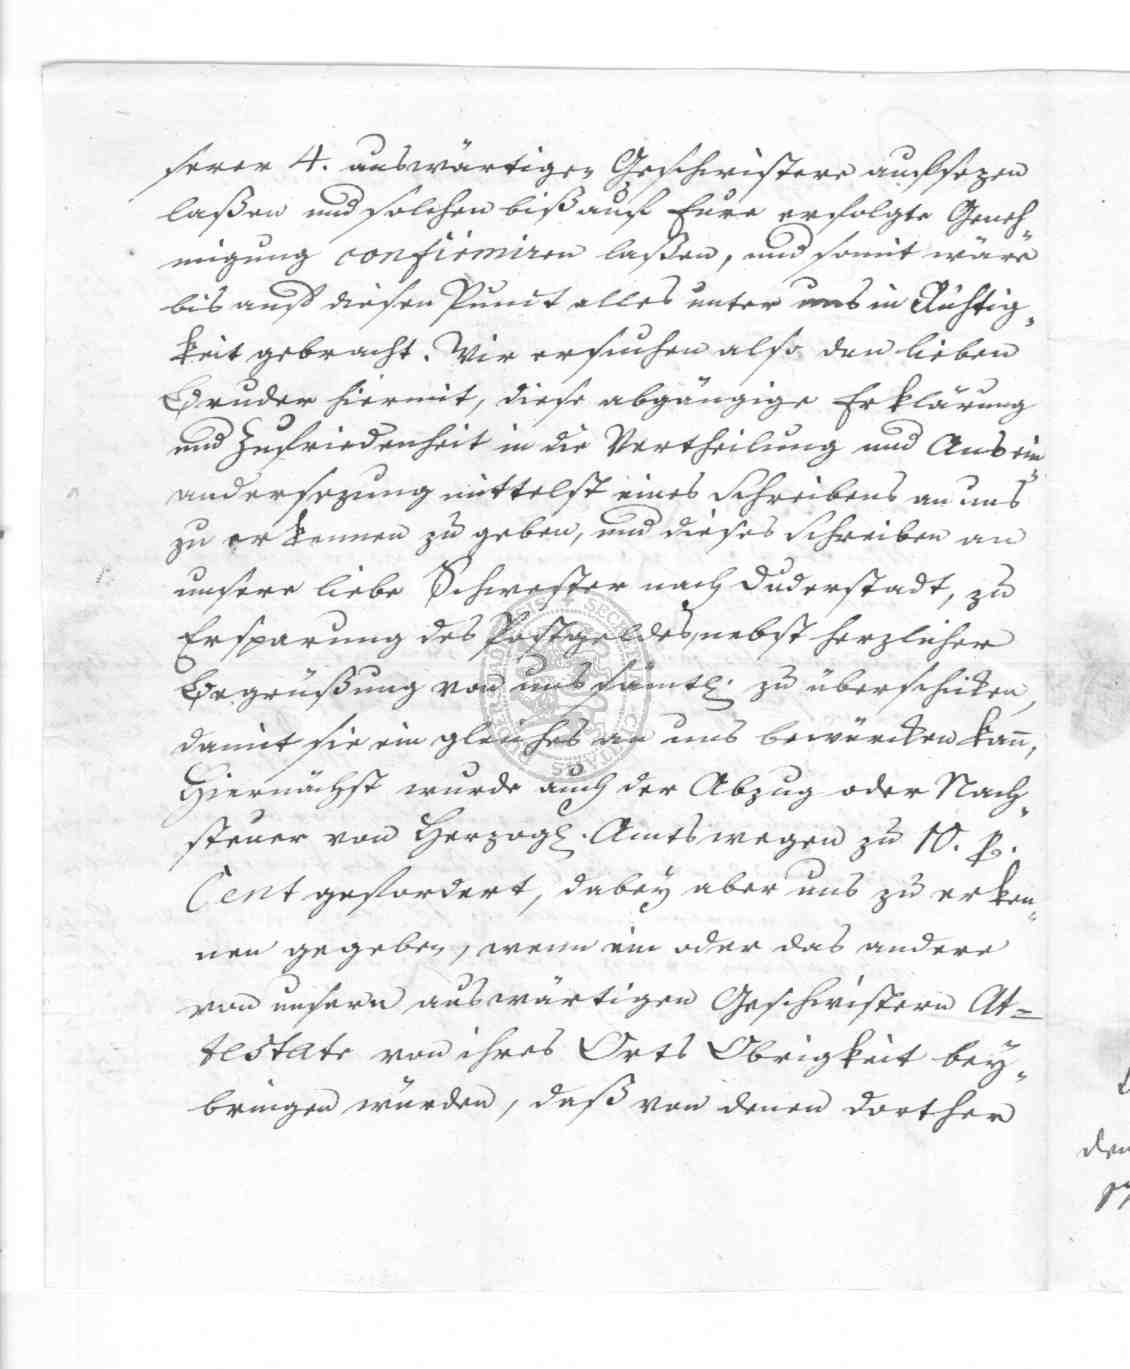 serer 4. auswärtigen Geschwistere aufsezen
laßen und solchen biß auf Eure erfolgte Geneh„
migung confirmiren laßen, und somit wäre
bis auf diesen Punct alles unter uns in Richtig„
keit gebracht. Wir ersuchen also den lieben
Bruder hiermit, diese abgängige Erklärung
und Zufriedenheit in die Vertheilung und Ausein„
andersezung mittelst eines Schreibens an uns
zu erkennen zu geben, und dieses Schreiben an
unsere liebe Schwester nach Duderstadt, zu
Ersparung des Postgeldes, nebst herzlicher
Begrüßung von uns sämtl. zu überschicken,
damit sie ein gleiches an uns bewürcken kann,
Hiernächst wurde auch der Abzug oder Nach„
steuer von Herzogl. Amts wegen zu 10. p.
Cent gefordert, dabey aber uns zu erken„
nen gegeben, wenn ein oder das andere
von unsern auswärtigen Geschwistern At=
testate von ihres Orts Obrigkeit bey„
bringen würden, daß von denen dorther
den